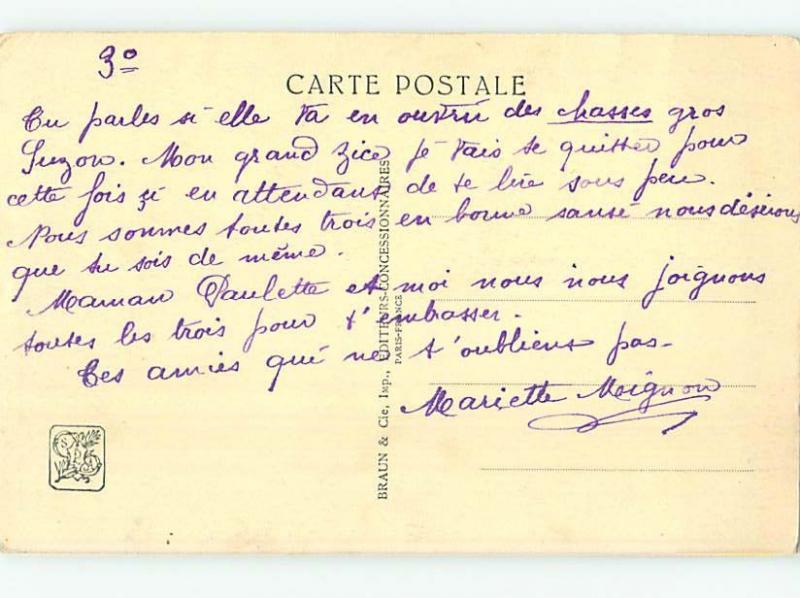 3º
CARTE POSTALE
Tu parles si elle va en ouvrir des chasses gros
Suzon. Mon grand zice je vais te quitter pour
cette fois zi en attendant de te lire sous peu.
Nous sommes toutes trois en bonne santé nous désirons
que tu sois de même.
Maman Paulette et moi nous nous joignons
toutes les trois pour t'embrasser.
Tes amies qui ne t'oublient pas-
Mariette Moignon
BRAUN & Cie, Imp., EDITEURS-CONCESSIONNAIRES
PARIS-FRANCE